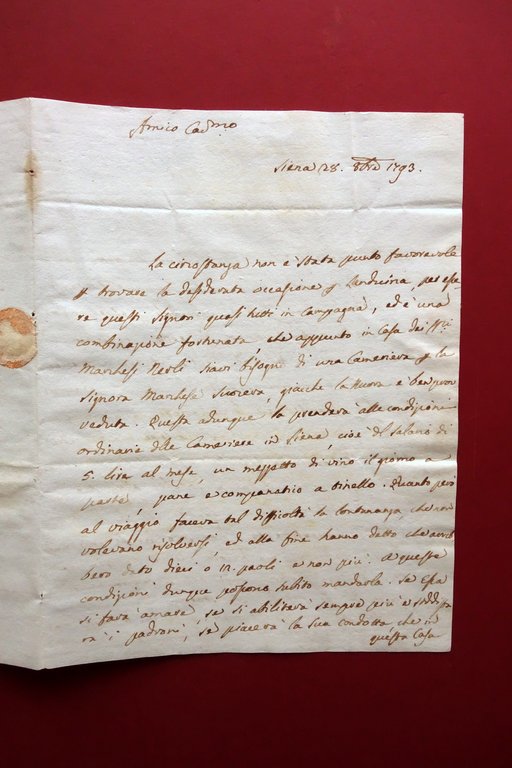 Amico Car.mo
Siena 28. 8bre 1793.
La circostanza non è stata punto favorevole
p trovare la desiderata occasione p Landuina, per esse
re questi Signori quasi tutti in Campagna, ed è una
combinazione fortunata, che appunto in Casa dei SS.ri
Marchesi Nerli siavi bisogno di una Cameriera p la
Signora Marchesa Suocera, giacche la Nuora è ben prov
veduta. Questa adunque la prenderà alle condizioni
ordinarie delle Cameriere in Siena, cioè del salario di
5. lire al mese, un mezzetto di vino il giorno a
pasto, pane e companatico a tinello. Quanto però
al viaggio faceva tal difficoltà la lontananza, che non
volevano risolversi, ed alla fine hanno detto che avreb
bero dato dieci o 12. paoli e non più. A queste
condizioni dunque possono subito mandarla. Se Essa
si farà amare, se si abiliterà sempre più a soddisfa
re i padroni, se piacerà la sua condotta, che in
questa Casa